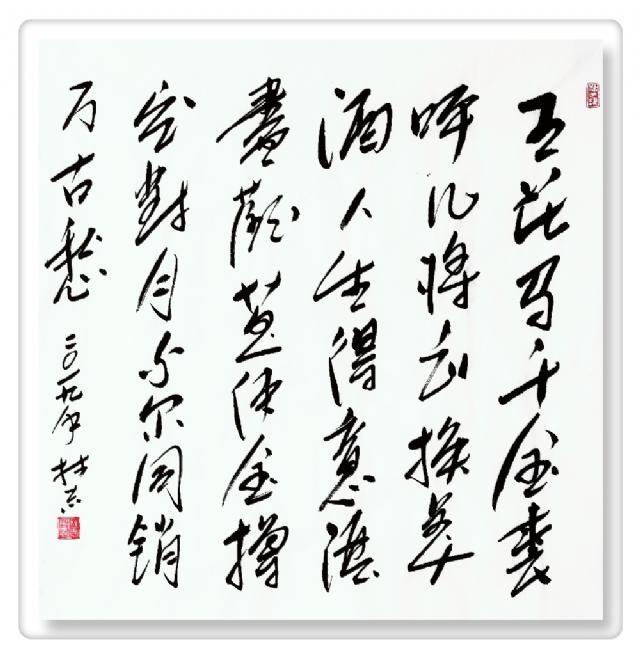 五花马千金裘
呼儿将出换美
酒人生得意须
盡歡莫使金樽
空對月与尔同销
万古愁
二〇一九年